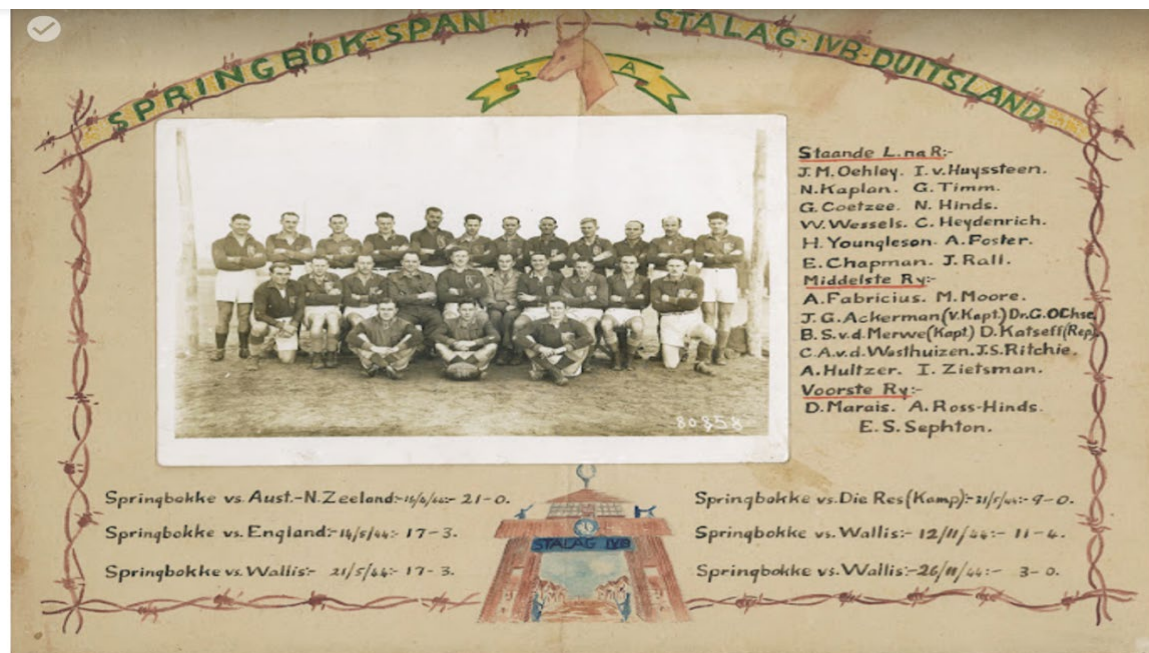 SPRINGBOK-SPAN STALAG-IVB-DUITSLAND
S A
Staande L. na R:-
J.M. Oehley. I. v. Huyssteen.
N. Kaplan. G. Timm.
G. Coetzee. N. Hinds.
W. Wessels. C. Heydenrich.
H. Youngleson. A. Foster.
E. Chapman. J. Rall.
Middelste Ry:-
A. Fabricius. M. Moore.
J.G. Ackerman (V. Kapt.) Dr. G. Ochse
B.S. v.d. Merwe (Kapt) D. Katseff (Rep)
C.A. v.d. Westhuizen. J.S. Ritchie.
A. Hultzer. I. Zietsman.
Voorste Ry:-
D. Marais. A. Ross-Hinds.
E.S. Sephton.
80858
Springbokke vs. Aust.-N. Zeeland:- 21-0.
Springbokke vs. England:- 14/5/44:- 17-3.
Springbokke vs. Wallis:- 21/5/44:- 17-3.
STALAG IVB
Springbokke vs. Die Res (Kamp):- 31/5/44:- 9-0.
Springbokke vs. Wallis:- 12/11/44:- 11-4.
Springbokke vs. Wallis:- 26/11/44:- 3-0.